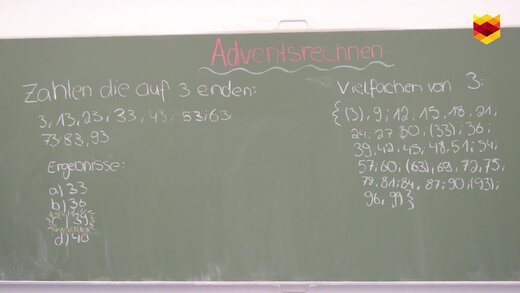 Adventsrechnen
Zahlen die auf 3 enden:
3, 13, 23, 33, 43, 53, 63,
73, 83, 93
Ergebnisse:
a) 33
b) 36
c) 39
d) 40
Vielfachen von 3:
{(3), 9; 12, 15, 18, 21,
24, 27, 30, (33), 36;
39, 42, 45, 48, 51, 54,
57, 60, (63), 69, 72, 75,
78, 81, 84, 87, 90, (93),
96, 99}